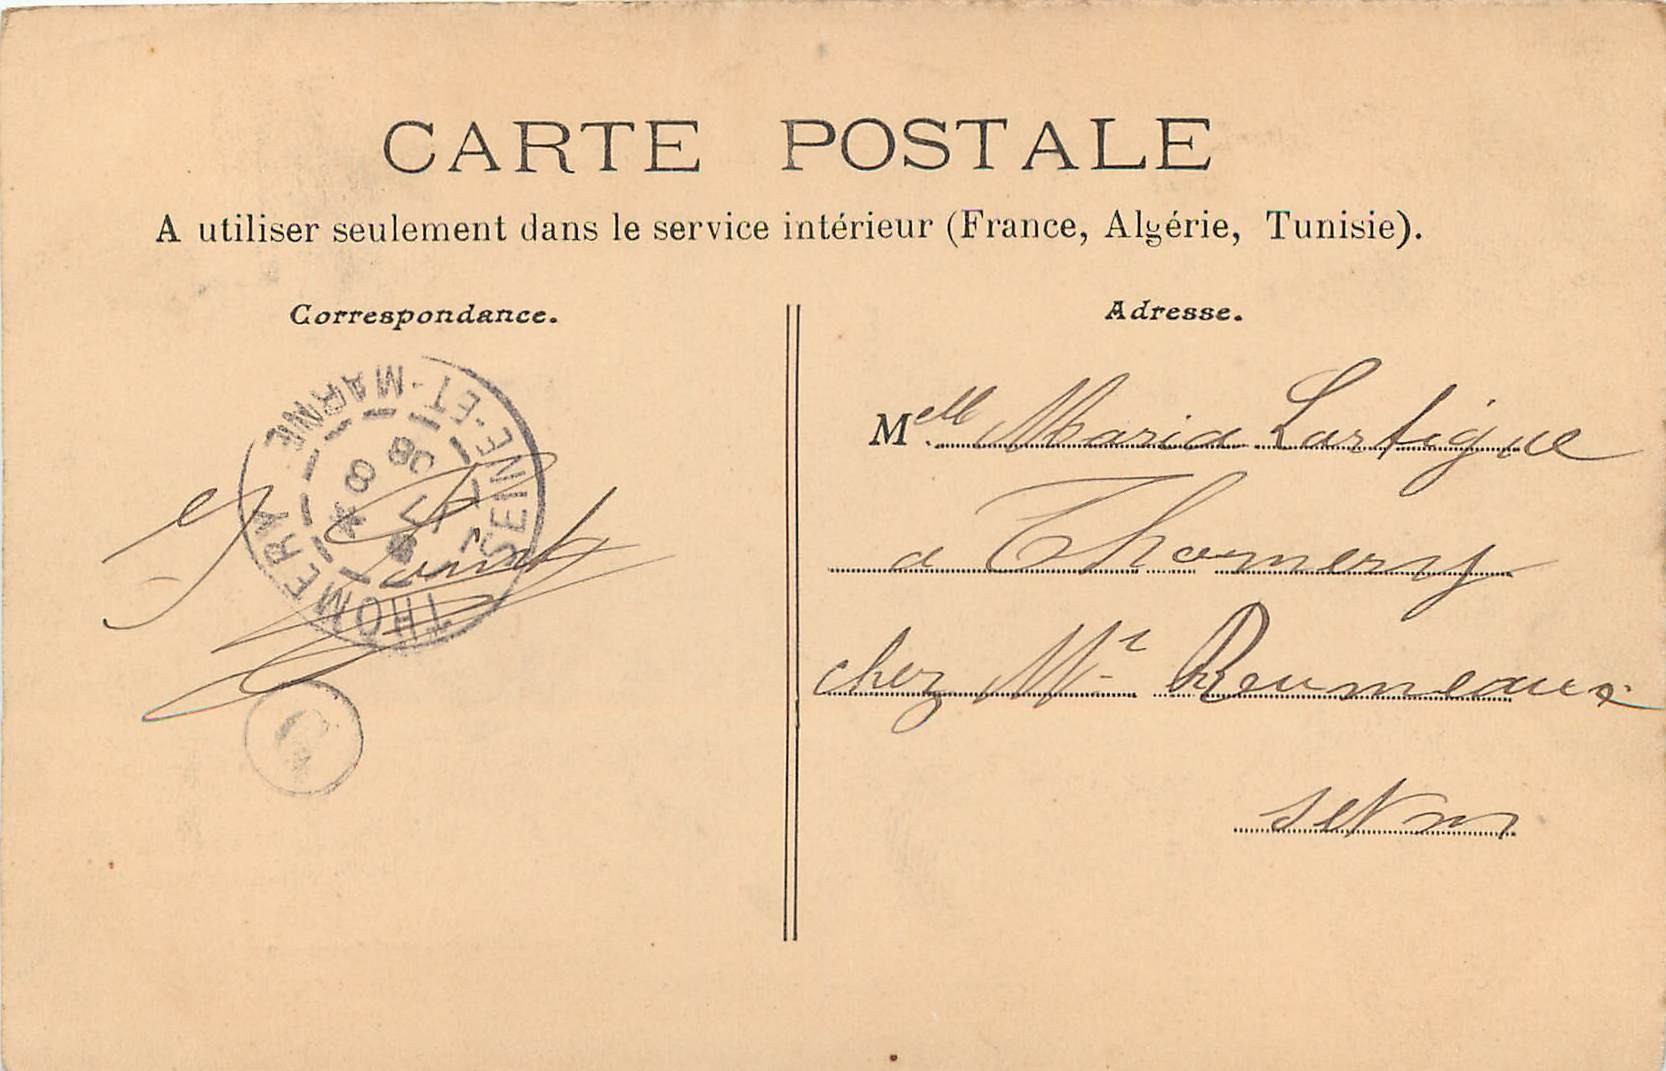 CARTE POSTALE
A utiliser seulement dans le service intérieur (France, Algérie, Tunisie).
Correspondance.
Adresse.
THOMERY
SEINE-ET-MARNE
Melle Maria Lartigue
a Thomery
chez Mr Roumeaux
S et M